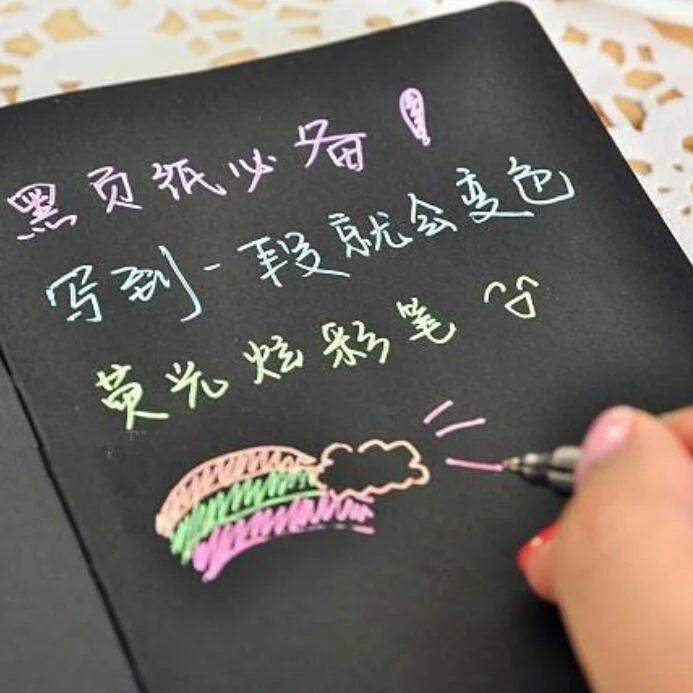 黑页纸必备！
写到一段就会变色
荧光炫彩笔